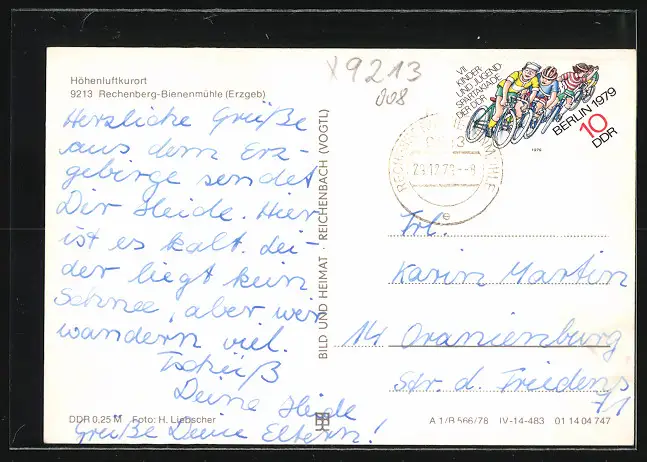 x9213
008
Höhenluftkurort
9213 Rechenberg-Bienenmühle (Erzgeb)
Herzliche Grüße
aus dem Erz-
gebirge sendet
Dir Heide. Hier
ist es kalt. Lei-
der liegt kein
Schnee, aber wir
wandern viel.
Tschüß
Deine Heide
Grüße Deine Eltern!
DDR 0,25 M Foto: H. Liebscher
BILD UND HEIMAT · REICHENBACH (VOGTL)
VII.
KINDER-
UND JUGEND-
SPARTAKIADE
DER DDR
BERLIN 1979
10
DDR
1979
9213
e
Frl.
Karin Martin
14 Oranienburg
Str. d. Friedens
71
A 1/B 566/78 IV-14-483 01 14 04 747